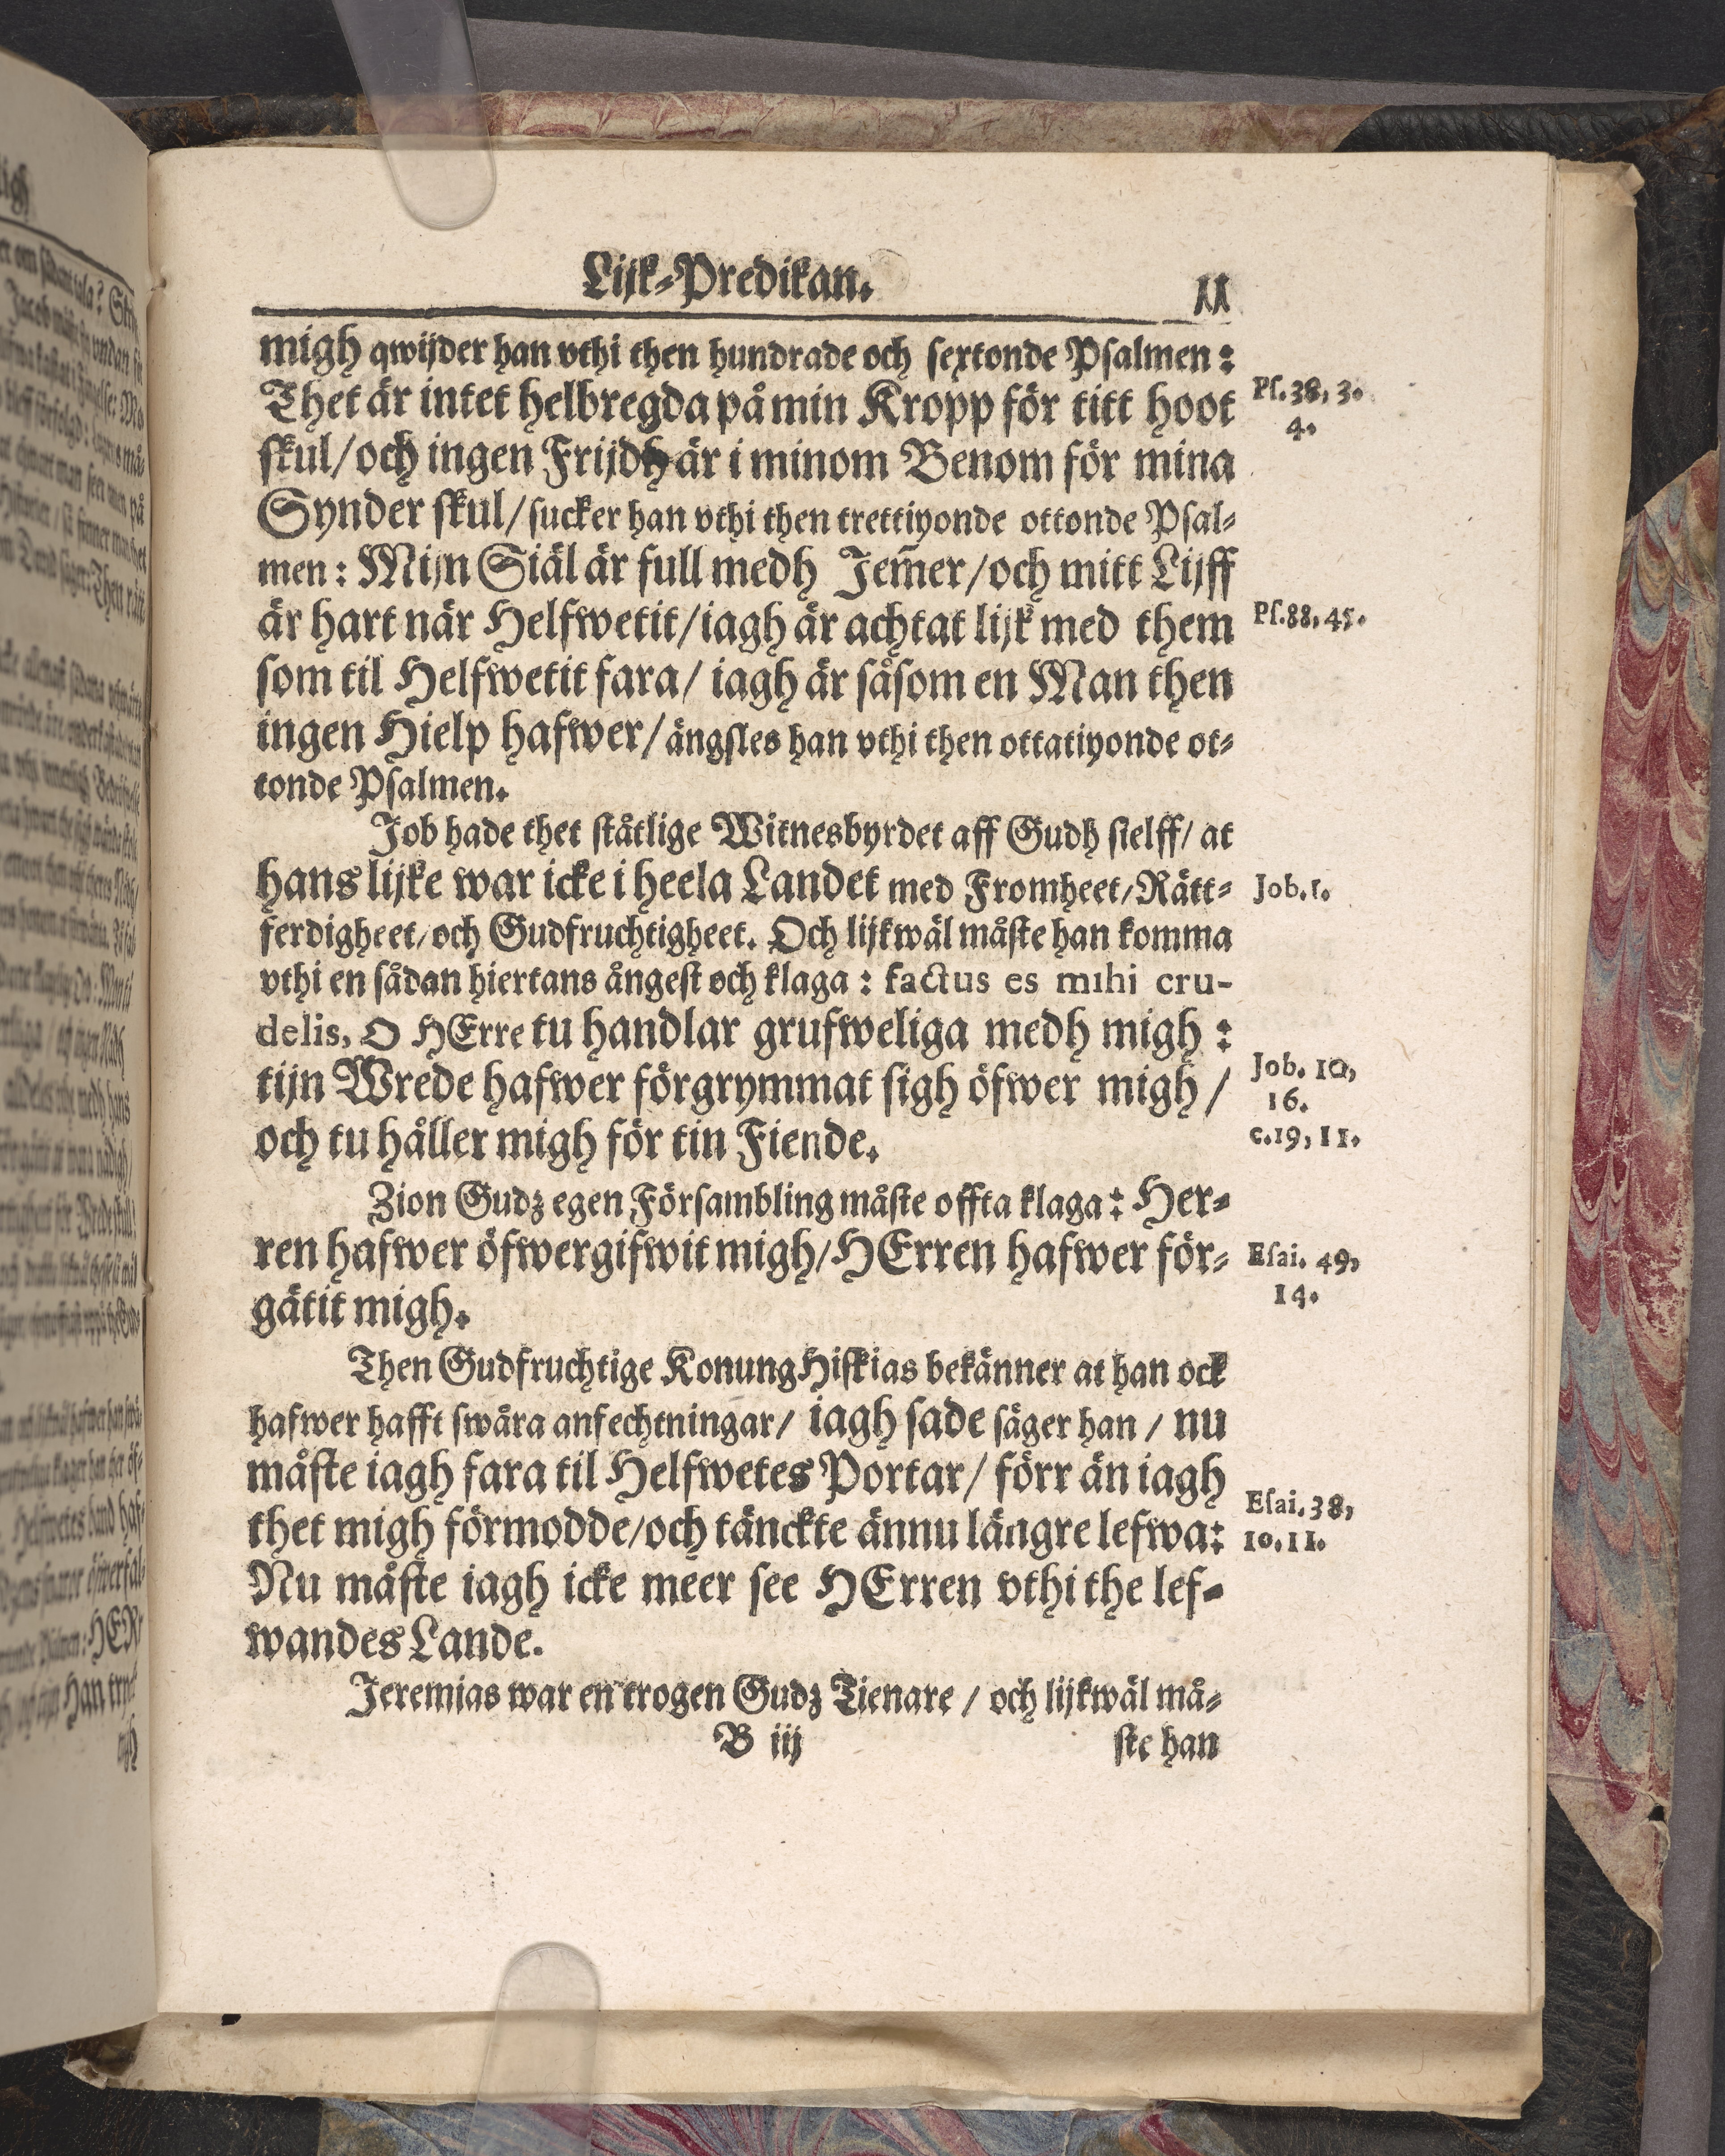 Lijk-Predikan. 11
migh qwijder han vthi then hundrade och sextonde Psalmen:
Thet är intet helbregda på min Kropp för titt hoot
Ps. 38, 3.
4.
skul/och ingen Frijdh är i minom Benom för mina
Synder skul/sucker han vthi then trettiyonde ottonde Psal-
men: Mijn Siäl är full medh Jem̄er/och mitt Lijff
är hart när Helfwetit/iagh är achtat lijk med them
Ps. 88, 45.
som til Helfwetit fara/ iagh är såsom en Man then
ingen Hielp hafwer/ängsles han vthi then ottatiyonde ot-
tonde Psalmen.
Job hade thet ståtlige Witnesbyrdet aff Gudh sielff/ at
hans lijke war icke i heela Landet med Fromheet/Rätt-
Job. 1.
ferdigheet/och Gudfruchtigheet. Och lijkwäl måste han komma
vthi en sådan hiertans ångest och klaga: factus es mihi cru-
delis, O HErre tu handlar grufweliga medh migh:
tijn Wrede hafwer förgrymmat sigh öfwer migh/
Job. 10,
16.
och tu håller migh för tin Fiende.
c. 19, 11.
Zion Gudz egen Försambling måste offta klaga: Her-
ren hafwer öfwergifwit migh/HErren hafwer för-
Esai. 49,
14.
gätit migh.
Then Gudfruchtige Konung Hiskias bekänner at han ock
hafwer hafft swåra anfechtningar/ iagh sade säger han / nu
måste iagh fara til Helfwetes Portar/ förr än iagh
thet migh förmodde/och tänckte ännu längre lefwa:
Esai. 38,
10. 11.
Nu måste iagh icke meer see HErren vthi the lef-
wandes Lande.
Jeremias war en trogen Gudz Tienare / och lijkwäl må-
B iij ste han